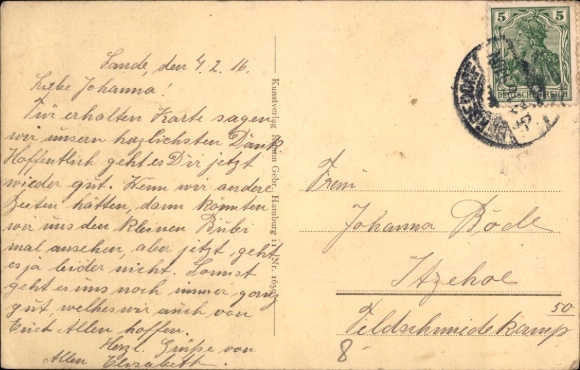 Sande, den 4.2.16.
Liebe Johanna!
Für erhalten Karte sagen
wir unsern herzlichsten Dank.
Hoffentlich geht es Dir jetzt
wieder gut. Wenn wir andere
Zeiten hätten, dann könnten
wir uns den kleinen Bubi
mal ansehen, aber jetzt geht
es ja leider nicht. Sonst
geht es uns noch immer ganz
gut, welches wir auch von
Euch Allen hoffen.
Herzl. Grüße von
Allen Elisabeth.
Kunstverlag Gebr., Hamburg Nr.
5 5
DEUTSCHES REICH
Johanna Bode
Itzehoe
50
Feldschmiedekamp
8